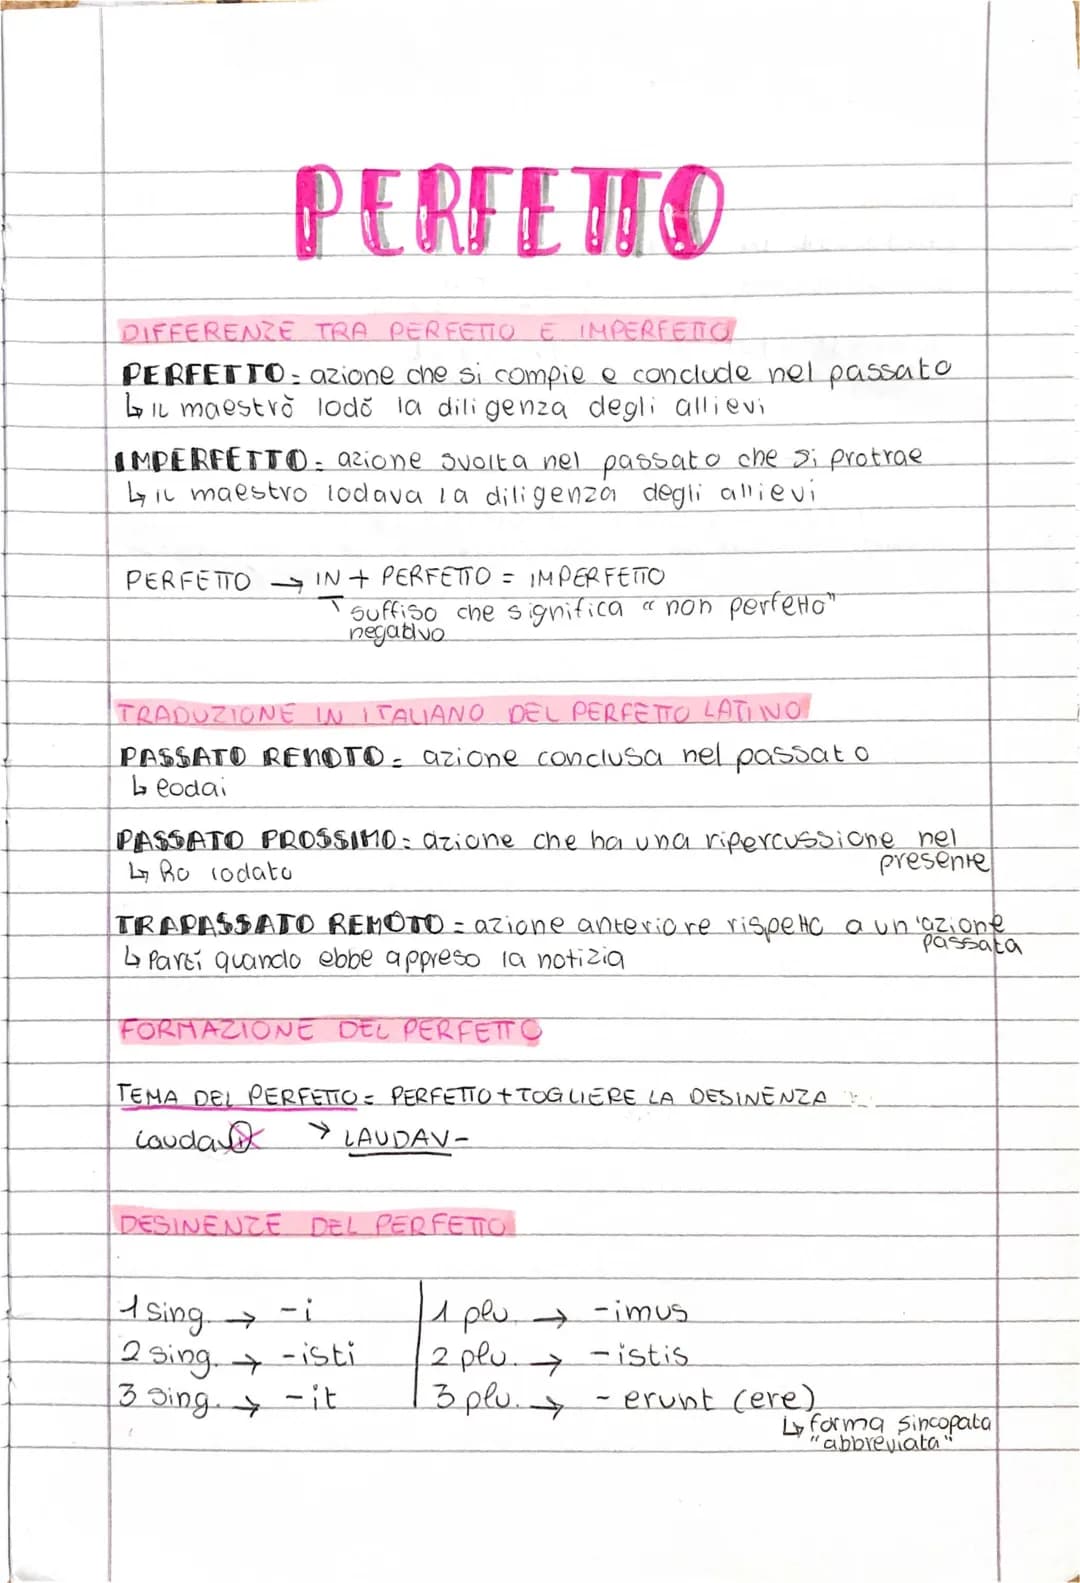 PERFETTO
DIFFERENZE TRA PERFETTO E IMPERFETTO
PERFETTO = azione che si compie e conclude nel passato
↳ il maestro lodò la diligenza degli allievi
IMPERFETTO = azione svolta nel passato che si protrae
↳ il maestro lodava la diligenza degli allievi
PERFETTO → IN + PERFETTO = IMPERFETTO
suffiso che significa "non perfetto"
negativo
TRADUZIONE IN ITALIANO DEL PERFETTO LATINO
PASSATO REMOTO = azione conclusa nel passato
↳ lodai
PASSATO PROSSIMO = azione che ha una ripercussione nel
presente
↳ Ho lodato
TRAPASSATO REMOTO = azione anteriore rispetto a un'azione
passata
↳ Partì quando ebbe appreso la notizia
FORMAZIONE DEL PERFETTO
TEMA DEL PERFETTO = PERFETTO + TOGLIERE LA DESINENZA
Laudavi → LAUDAV-
DESINENZE DEL PERFETTO
1 sing. → -i | 1 plu. → -imus
2 sing. → -isti | 2 plu. → -istis
3 sing. → -it | 3 plu. → -erunt (ere)
↳ forma sincopata
"abbreviata"